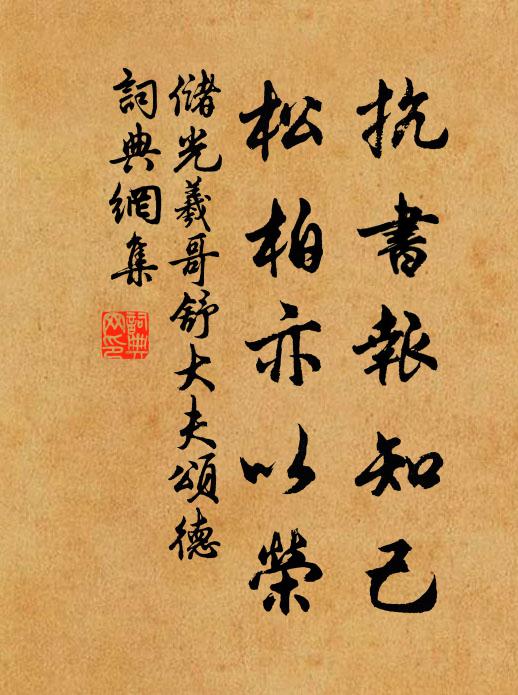 抗書報知己
松柏亦以榮
儲光羲哥舒大夫頌德
詞典網集
詞典網印